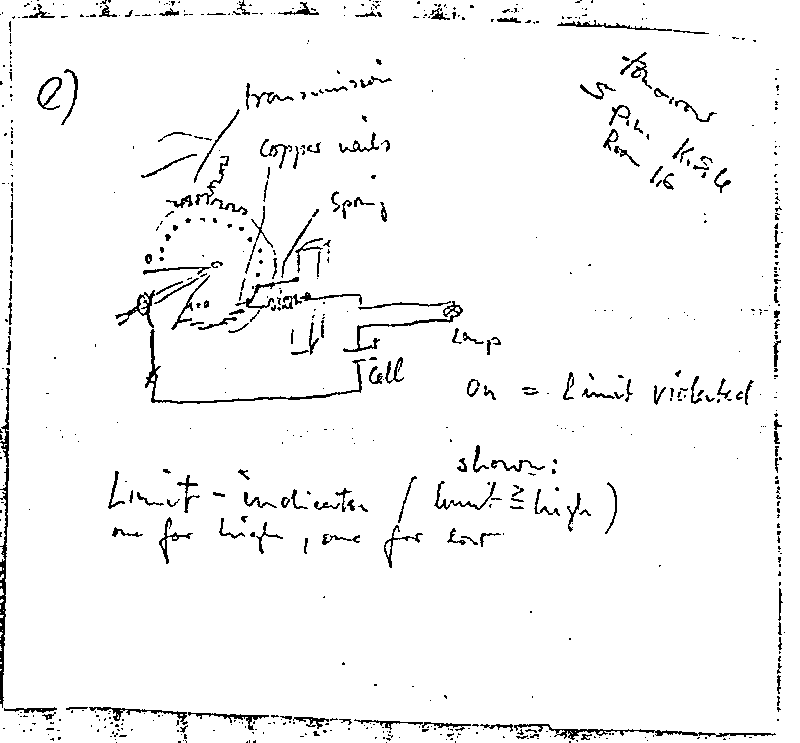 e)
transmission
copper nails
Spring
Lamp
Cell
on = Limit violated
shown:
Limit-indicator (limit ≥ high)
one for high, one for low
tomorrow
5 p.m.
Room 16